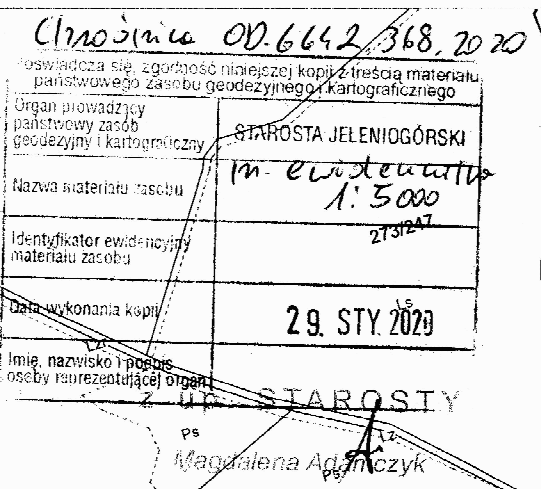 Chrośnica OD.6642.368.2020
Poświadcza się, zgodność niniejszej kopii z treścią materiału
państwowego zasobu geodezyjnego i kartograficznego
Organ prowadzący
państwowy zasób
geodezyjny i kartograficzny
STAROSTA JELENIOGÓRSKI
Nazwa materiału zasobu
m. ewidencyjna
1:5000
273/247
Identyfikator ewidencyjny
materiału zasobu
Ls
Data wykonania kopii
29. STY. 2020
Lz
Imię, nazwisko i podpis
osoby reprezentującej organ
z up. STAROSTY
Ps
Lz
Magdalena Adamczyk
Ps